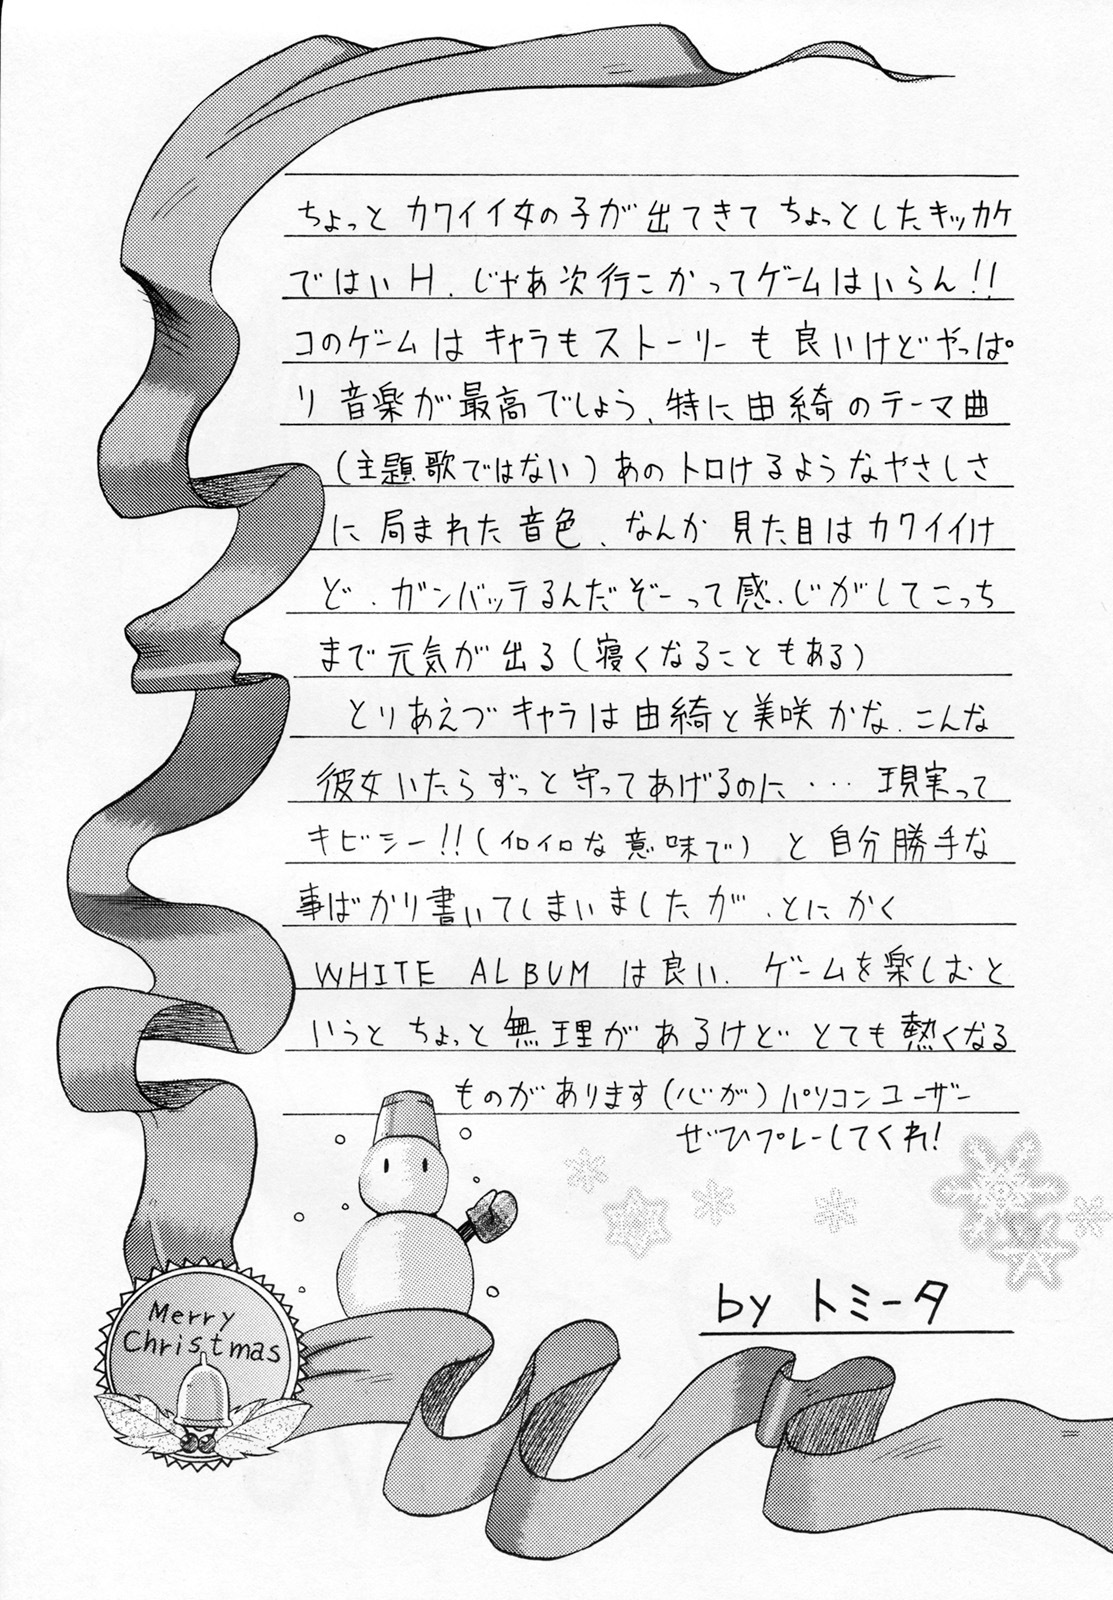 ちょっと カワイイ女の子が出てきて ちょっとしたキッカケ
ではいH、じゃあ次行こかってゲームはいらん!!
コのゲームは キャラもストーリーも良いけどやっぱ
り音楽が最高でしょう、特に由綺のテーマ曲
(主題歌ではない)あのトロけるようなやさしさ
に局まれた音色、なんか見た目はカワイイけ
ど、ガンバッテるんだぞーって感じがしてこっち
まで元気が出る(寝くなることもある)
とりあえづキャラは由綺と美咲かな、こんな
彼女いたらずっと守ってあげるのに・・・現実って
キビシー!!(イロイロな意味で)と自分勝手な
事ばかり書いてしまいましたが、とにかく
WHITE ALBUMは良い、ゲームを楽しむと
いうとちょっと無理があるけどとても熱くなる
ものがあります(心が)パソコンユーザー
ぜひプレーしてくれ!
by トミータ
Merry
Christmas